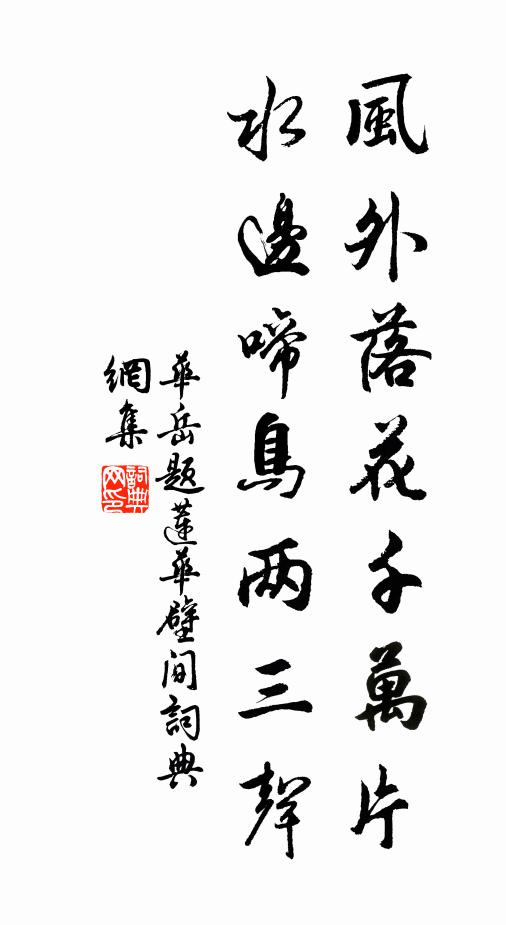 風外落花千萬片
水邊啼鳥两三聲
華岳題蓮華壁間詞典
網集
詞典網印